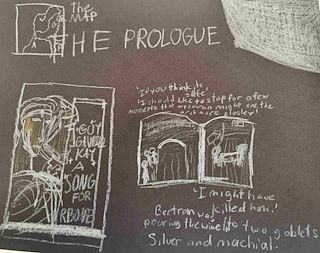 the
MAP
HE PROLOGUE
'If you think its
safe'
'I should like to stop for a few
moments that my cousin might see the
arch more closley'
GUY
GAVRIEL
KAY
A
SONG
FOR
RBONNE
'I might have
killed him.'
Bertran was
pouring the wine into two goblets
Silver and machial.